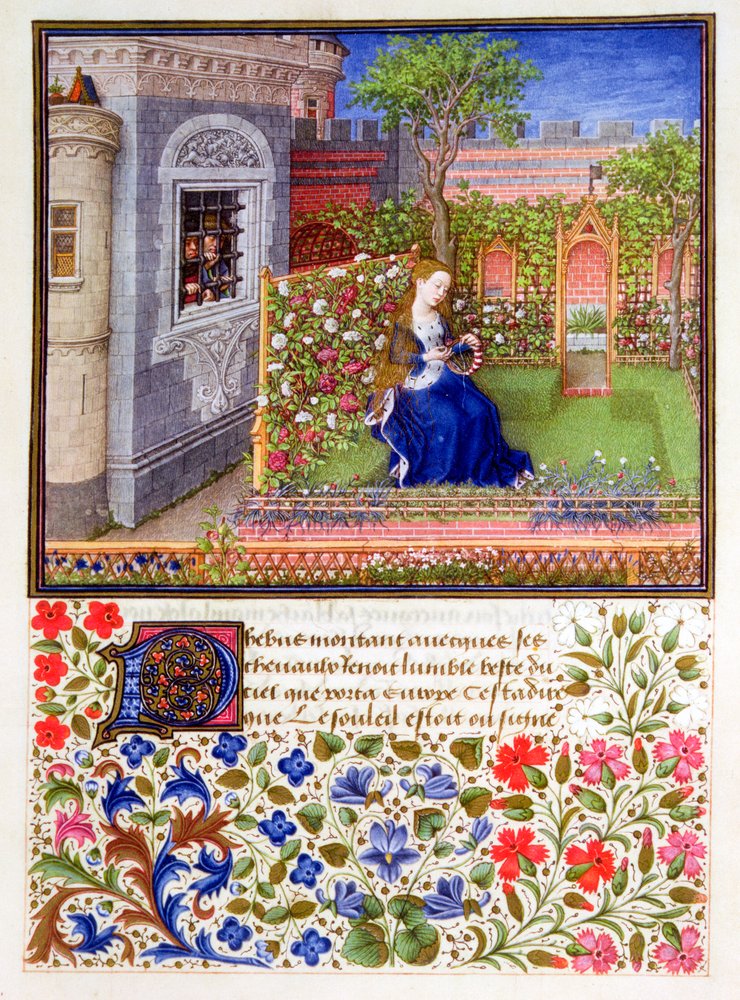 Phebus montant auecques ses
cheuaulx tenoit lumble beste du
ciel que porta Europe Cest adire
que Le souleil estoit ou signe